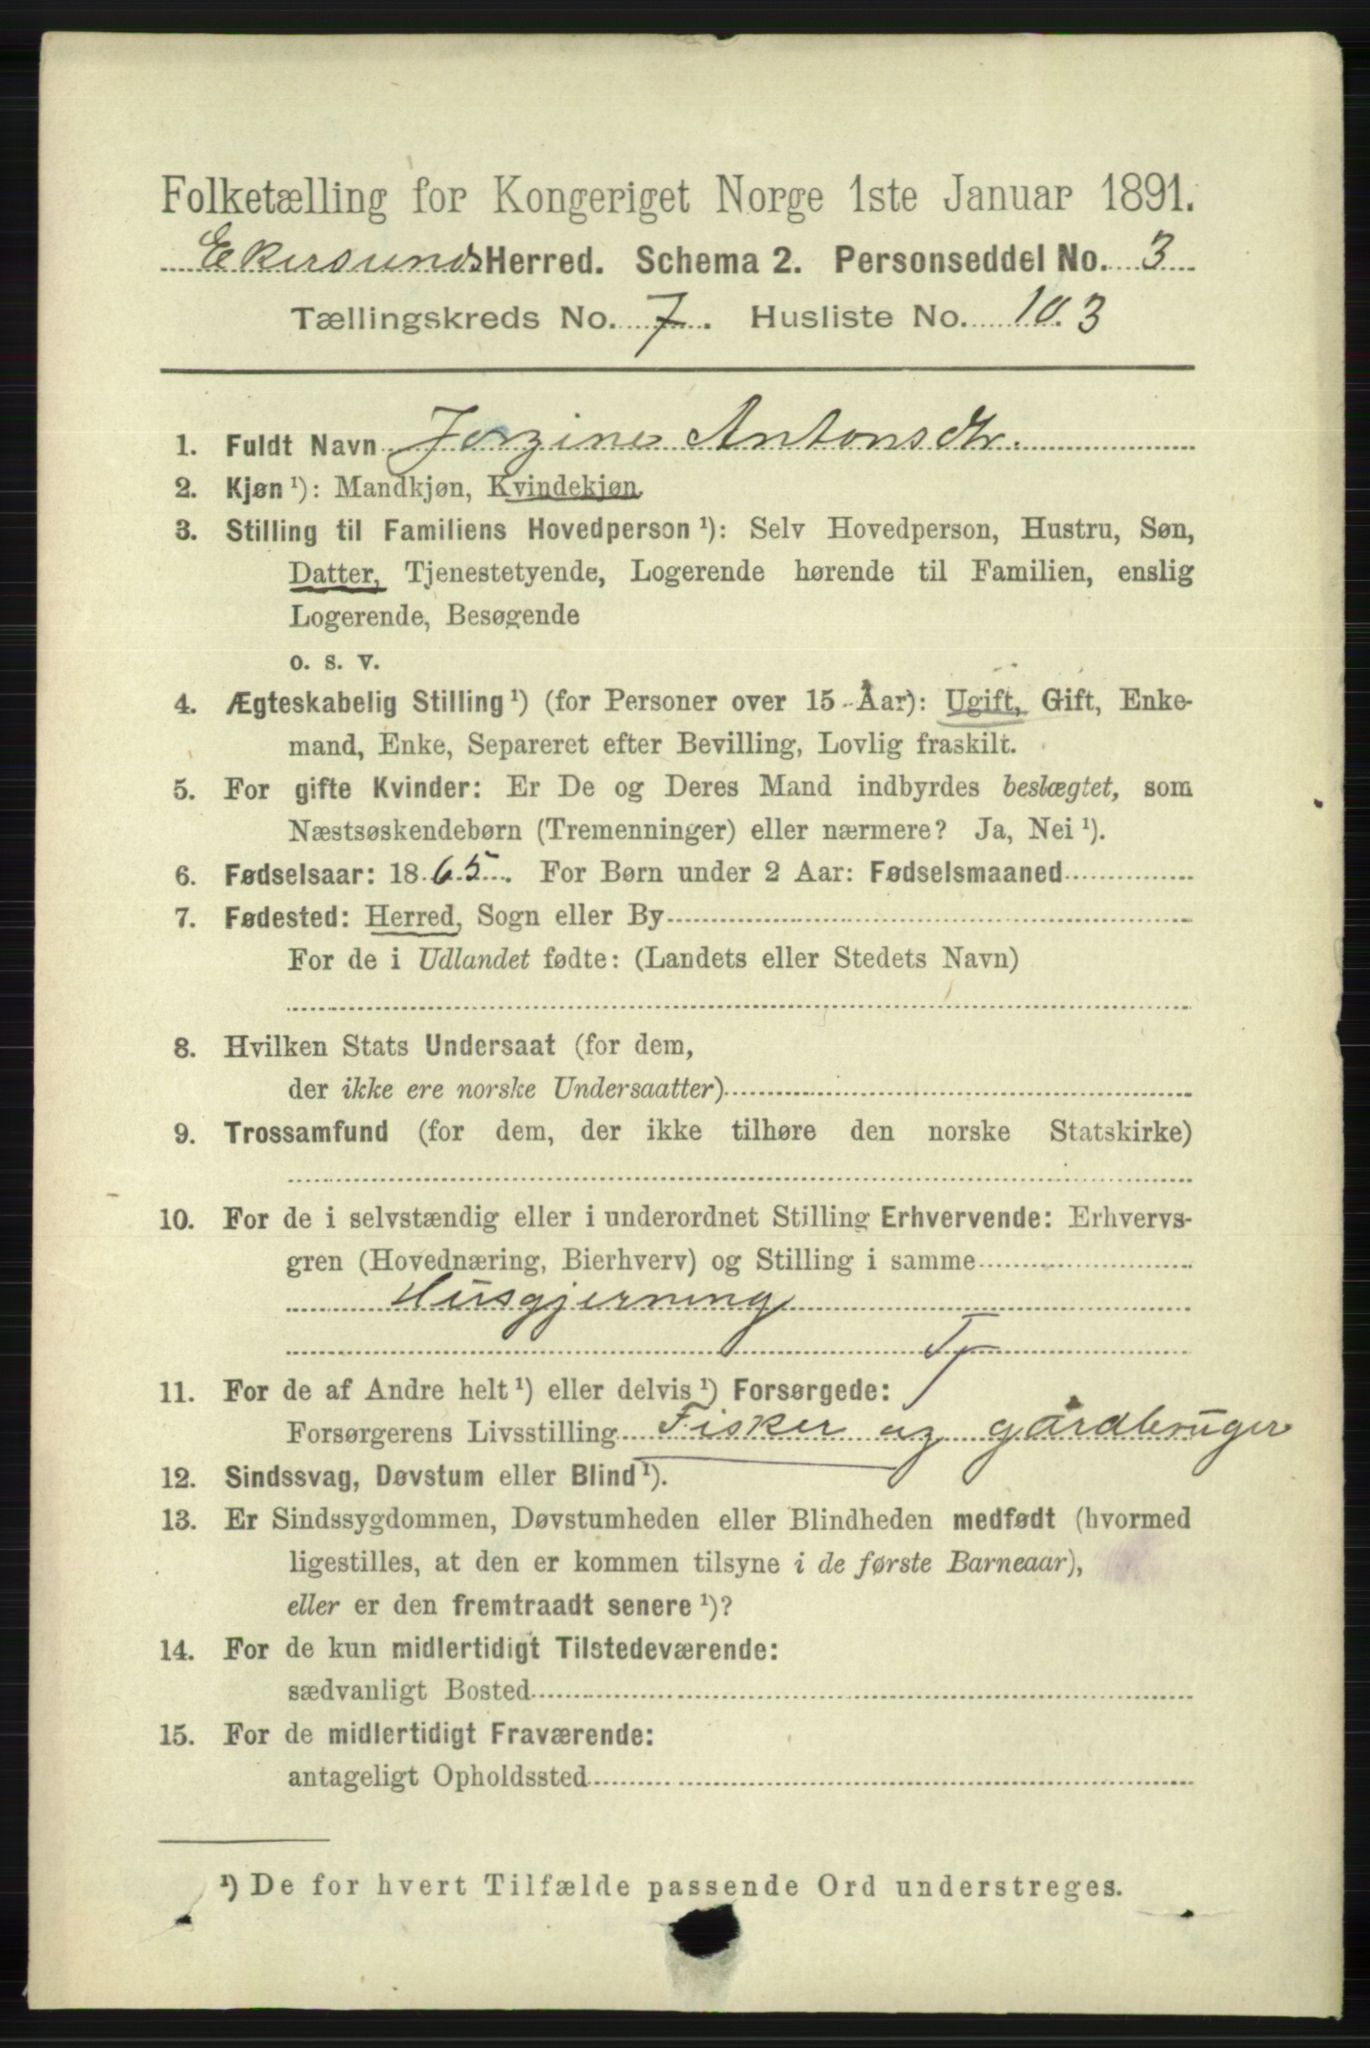 Folketælling for Kongeriget Norge 1ste Januar 1891.
Ekersunds Herred. Schema 2. Personseddel No. 3
Tællingskreds No. 7. Husliste No. 103
1. Fuldt Navn Jorgine Antonsdtr.
2. Kjøn ¹): Mandkjøn, Kvindekjøn.
3. Stilling til Familiens Hovedperson ¹): Selv Hovedperson, Hustru, Søn,
Datter, Tjenestetyende, Logerende hørende til Familien, enslig
Logerende, Besøgende
o. s. v.
4. Ægteskabelig Stilling ¹) (for Personer over 15 Aar): Ugift, Gift, Enke-
mand, Enke, Separeret efter Bevilling, Lovlig fraskilt.
5. For gifte Kvinder: Er De og Deres Mand indbyrdes beslægtet, som
Næstsøskendebørn (Tremenninger) eller nærmere? Ja, Nei ¹).
6. Fødselsaar: 1865. For Børn under 2 Aar: Fødselsmaaned
7. Fødested: Herred, Sogn eller By
For de i Udlandet fødte: (Landets eller Stedets Navn)
8. Hvilken Stats Undersaat (for dem,
der ikke ere norske Undersaatter)
9. Trossamfund (for dem, der ikke tilhøre den norske Statskirke)
10. For de i selvstændig eller i underordnet Stilling Erhvervende: Erhvervs-
gren (Hovednæring, Bierhverv) og Stilling i samme
Husgjerning
T
11. For de af Andre helt ¹) eller delvis ¹) Forsørgede:
Forsørgerens Livsstilling Fisker og gårdbruger
12. Sindssvag, Døvstum eller Blind ¹).
13. Er Sindssygdommen, Døvstumheden eller Blindheden medfødt (hvormed
ligestilles, at den er kommen tilsyne i de første Barneaar),
eller er den fremtraadt senere ¹)?
14. For de kun midlertidigt Tilstedeværende:
sædvanligt Bosted
15. For de midlertidigt Fraværende:
antageligt Opholdssted
¹) De for hvert Tilfælde passende Ord understreges.